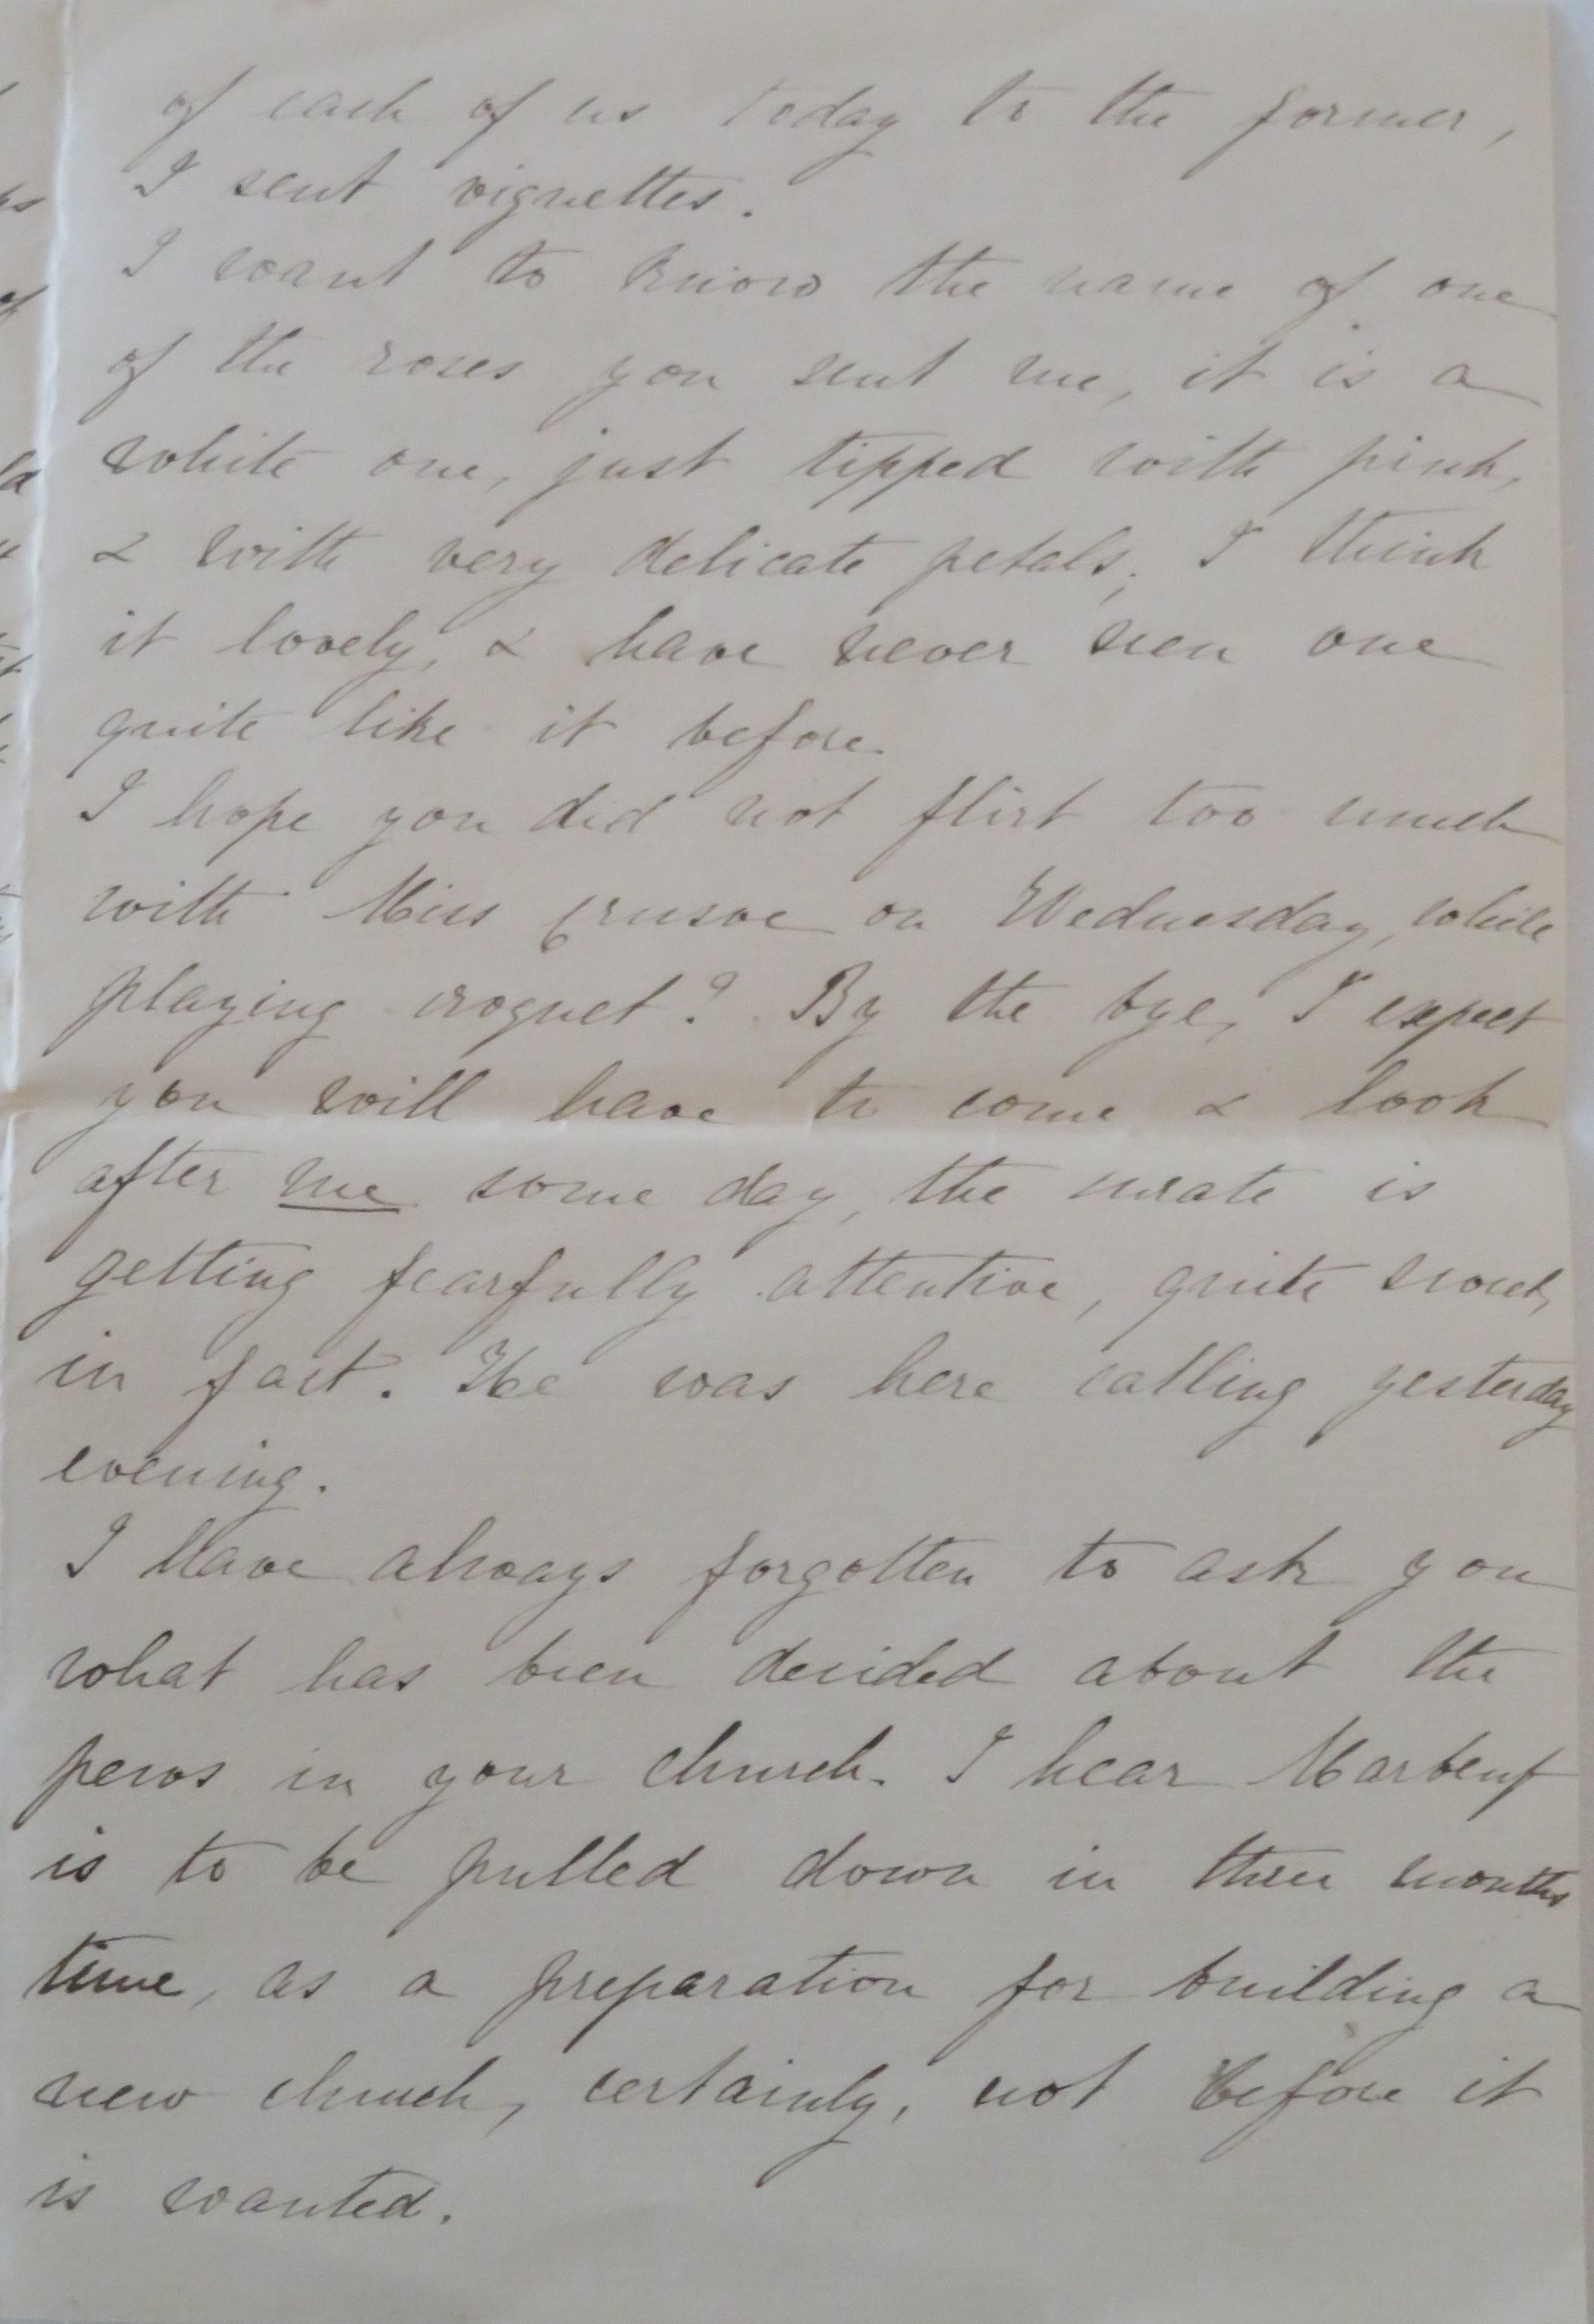 of each of us today to the former,
I sent vignettes.
I want to know the name of one
of the roses you sent me, it is a
white one, just tipped with pink,
& with very delicate petals; I think
it lovely, & have never seen one
quite like it before.
I hope you did not flirt too much
with Miss Crusoe on Wednesday, while
playing croquet? By the bye, I expect
you will have to come & look
after me some day, the curate is
getting fearfully attentive, quite
in fact. He was here calling yesterday
evening.
I have always forgotten to ask you
what has been decided about the
pews in your church. I hear Marbeuf
is to be pulled down in three months
time, as a preparation for building a
new church, certainly, not before it
is wanted.